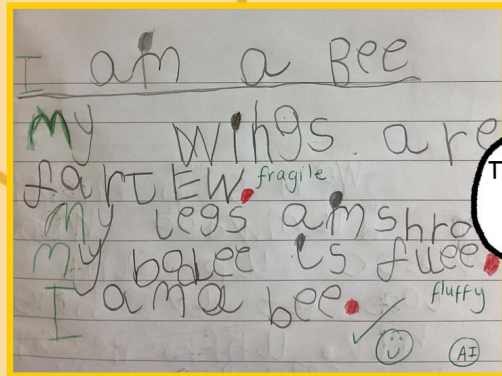 I am a Bee
My wings. are
farTEW. fragile
My legs am shro
My bodee is fluee.
I am a bee. fluffy
AI
T